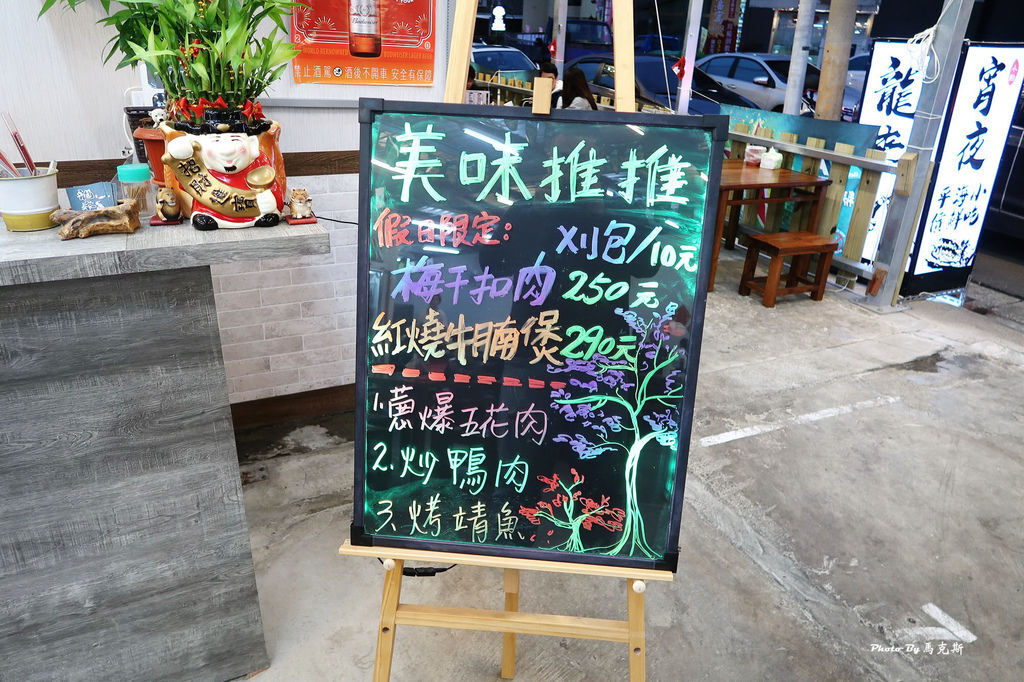 WORLD-RENOWNED BUDWEISER LAGER BEER
禁止酒駕 酒後不開車 安全有保障
招財進寶
美味推推
假日限定:
刈包/10元
梅干扣肉 250元
紅燒牛腩煲 290元
1.蔥爆五花肉
2.炒鴨肉
3.烤靖魚
龍
宵夜
小吃
海鮮
平價
Photo By 馬克斯